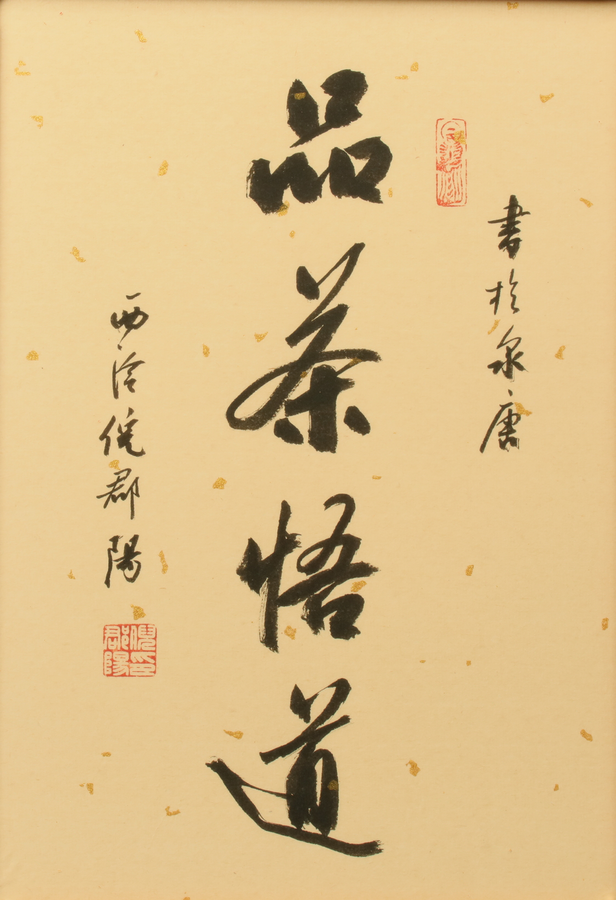 書於泉唐
品茶悟道
西泠倪郡陽
倪印郡陽